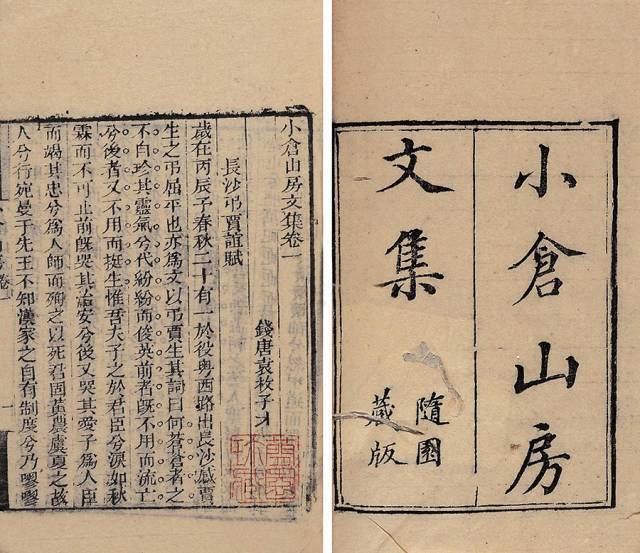 小倉山房
文集
隨園
藏版
小倉山房文集卷一
錢唐袁枚子才
長沙弔賈誼賦
歲在丙辰予春秋二十有一於役粤西路出長沙感賈
生之弔屈平也亦爲文以弔賈生其詞曰何蒼蒼者之
不自珍其靈氣兮代紛紛而俊英前者旣不用而流亡
兮後者又不用而挺生惟吾夫子之於君臣兮淚如秋
霖而不可止前旣哭其治安兮後又哭其愛子爲人臣
而竭其忠兮爲人師而殉之以死君固黃農虞夏之故
人兮行宛曼于先王不知漢家之自有制度兮乃嘐嘐